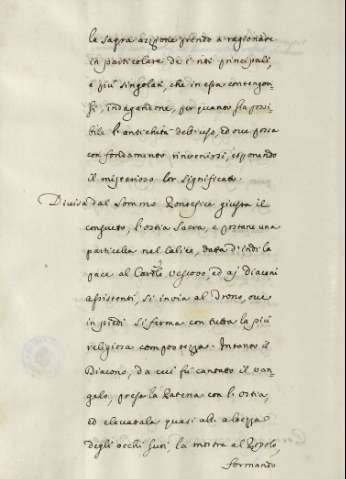 la sagra azzione prendo a ragionare
in particolare de i riti principali,
e più singolari, che in essa contengon-
si, indagandone, per quanto sia possi-
bile l'antichità dell'uso, ed ove possa
con fondamento rinvenirsi, esponendo
il misterioso lor significato.
Divisa dal Sommo Pontefice giusta il
consueto, l'ostia Sacra, e postane una
particella nel Calice, data d'indi la
pace al Cardle Vescovo, ed a i Diaconi
assistenti, si invia al Trono, ove
in piedi si ferma con tutta la più
religiosa compostezza. Intanto il
Diacono, da cui fu cantato il Van-
gelo, presa la Patena con l'Ostia,
ed elevatala quasi all'altezza
degli occhi suoi la mostra al Popolo,
formando